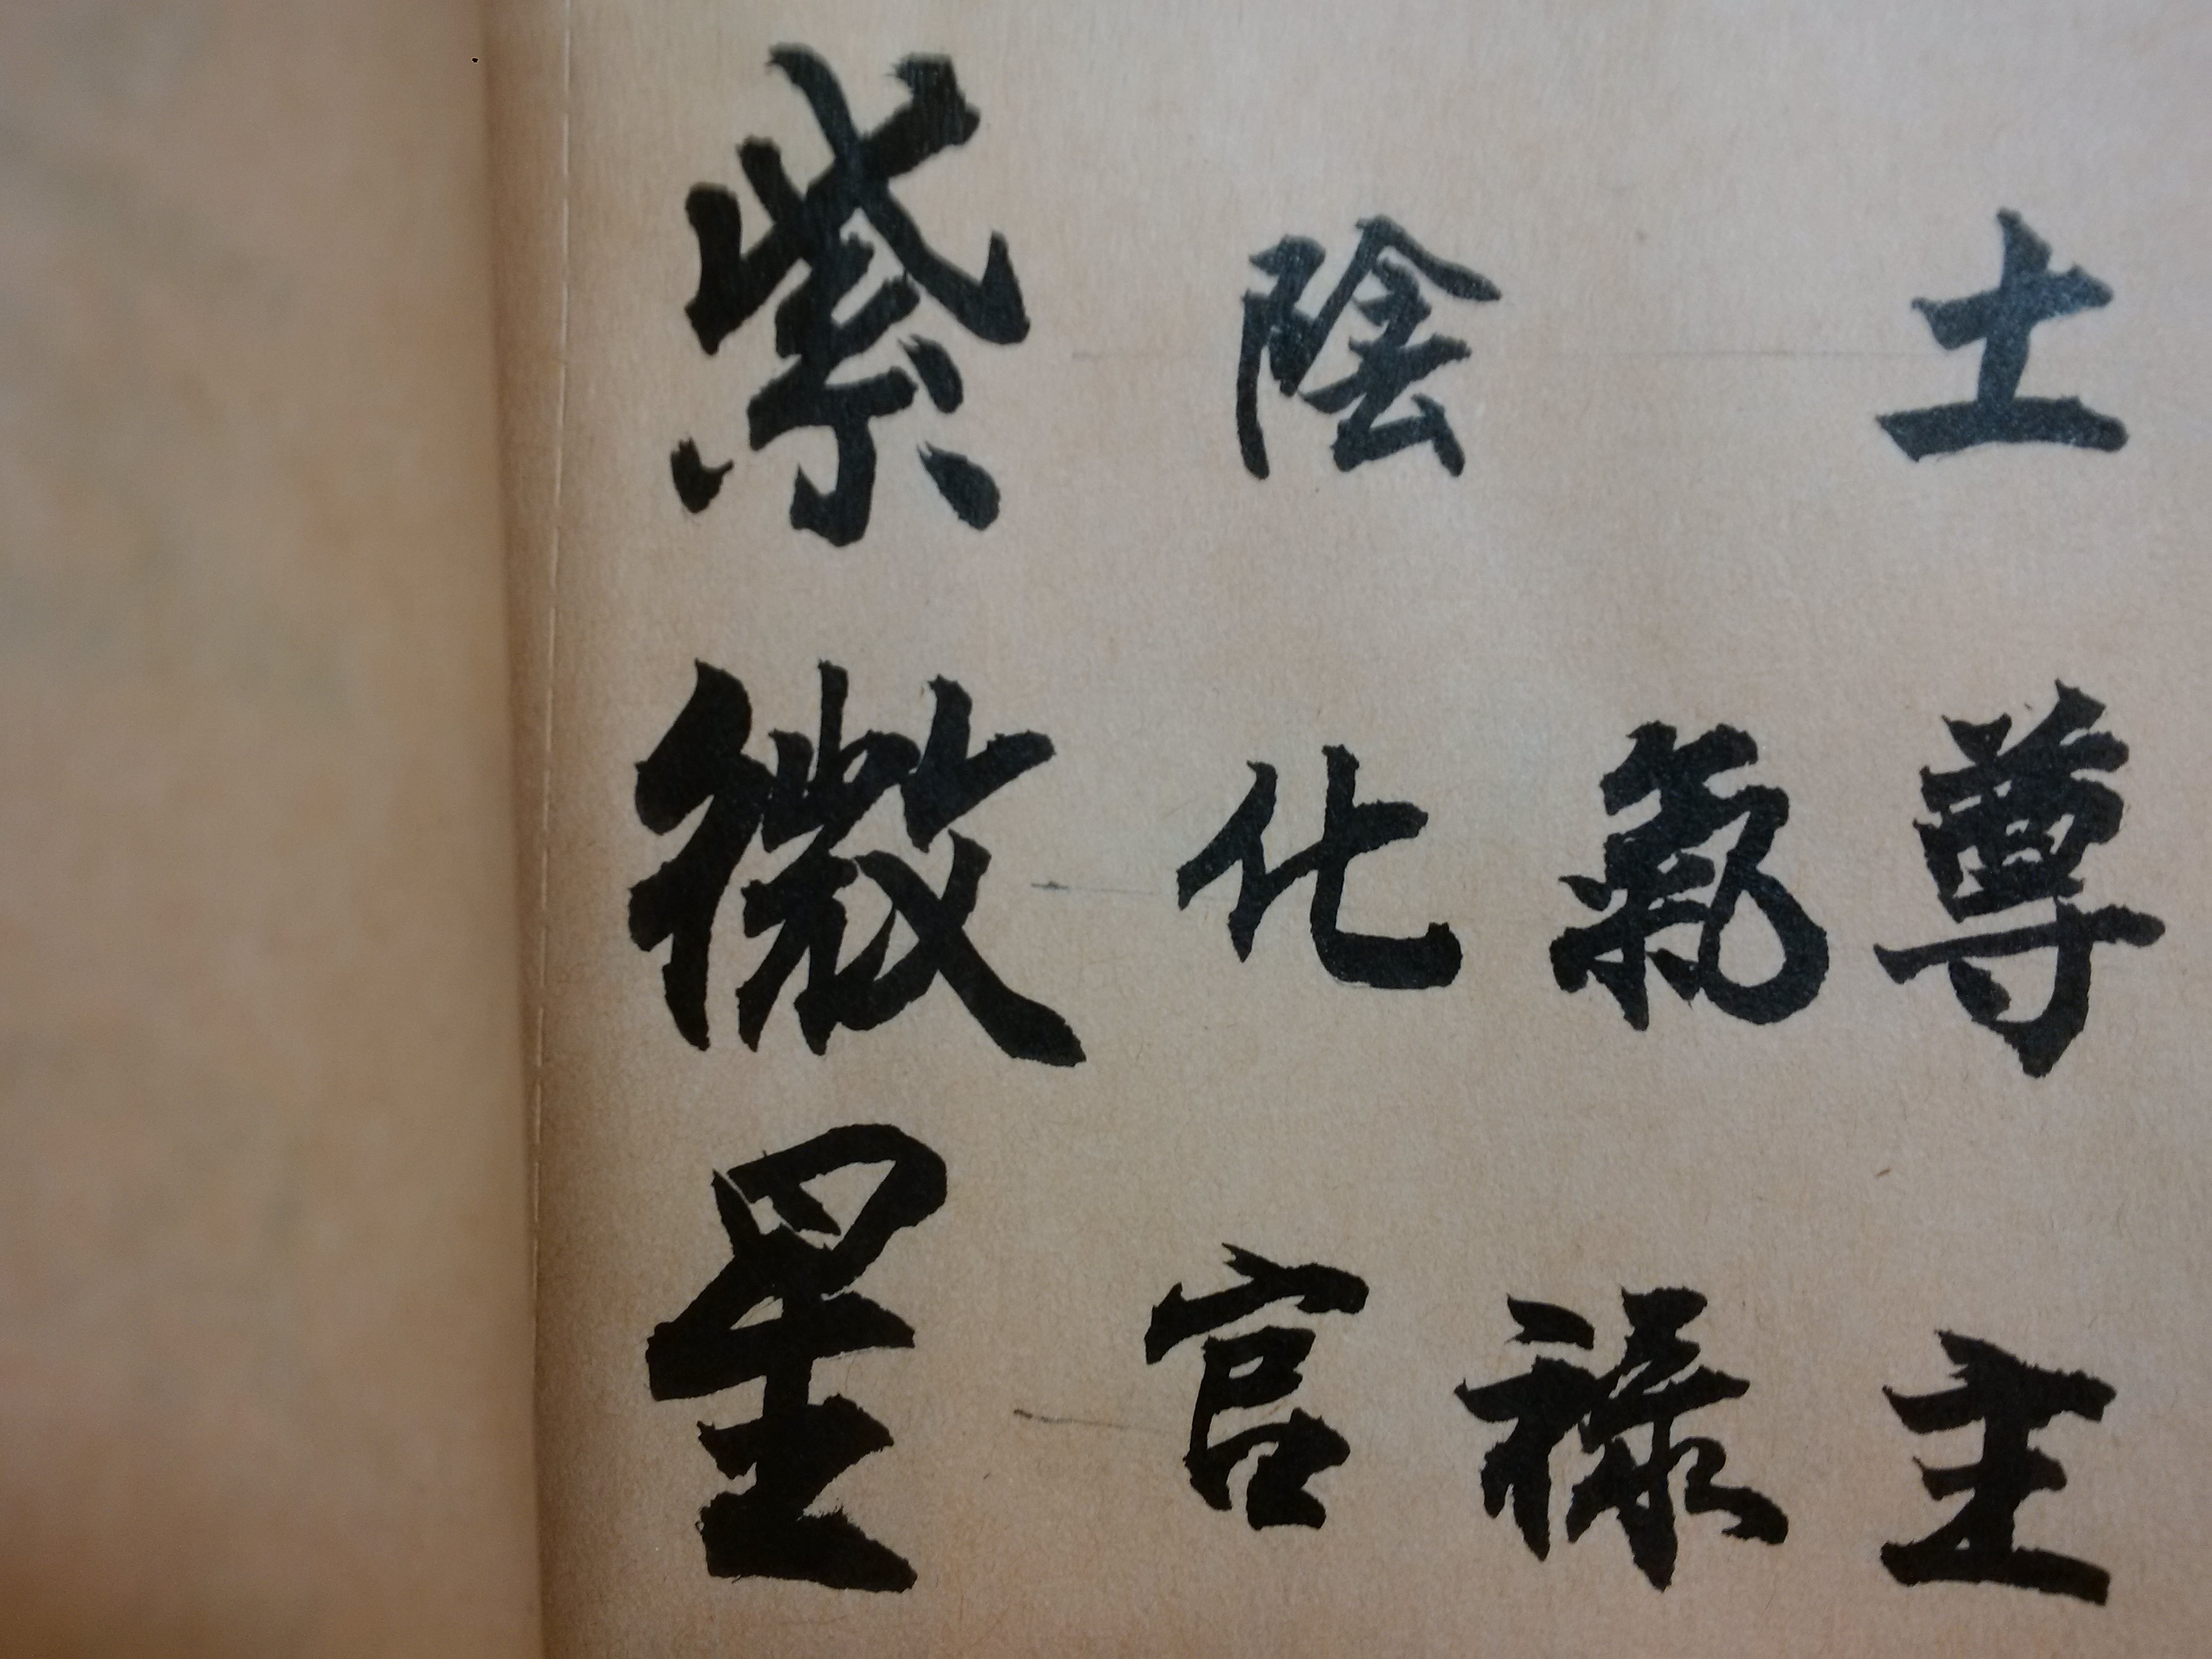 紫微星
陰土
化氣尊
官祿主